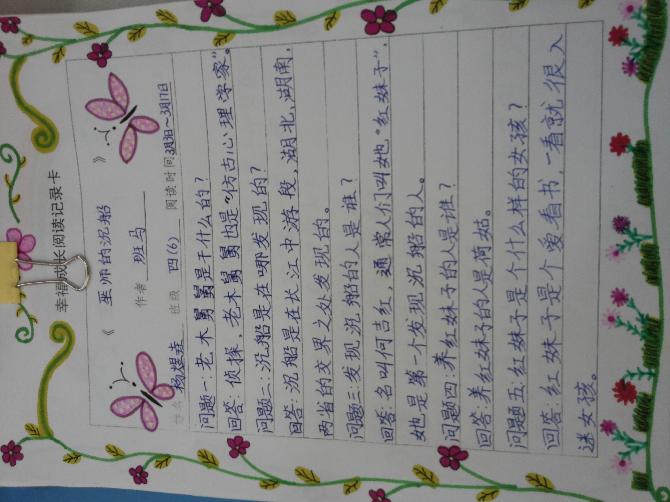 幸福成长阅读记录卡
《 巫师的沉船 》
作者 班马
姓名 杨煜垚 班级 四(6) 阅读时间 3月3日~3月17日
问题一:老木舅舅是干什么的?
回答:侦探,老木舅舅也是“仿古心理学家”。
问题二:沉船是在哪发现的?
回答:沉船是在长江中游段,湖北,湖南,
两省的交界之处发现的。
问题三:发现沉船的人是谁?
回答:名叫何吉红,通常人们叫她“红妹子”,
她是第一个发现沉船的人。
问题四:养红妹子的人是谁?
回答:养红妹子的人是菏姑。
问题五:红妹子是个什么样的女孩?
回答:红妹子是个爱看书,一看就很入
迷女孩。